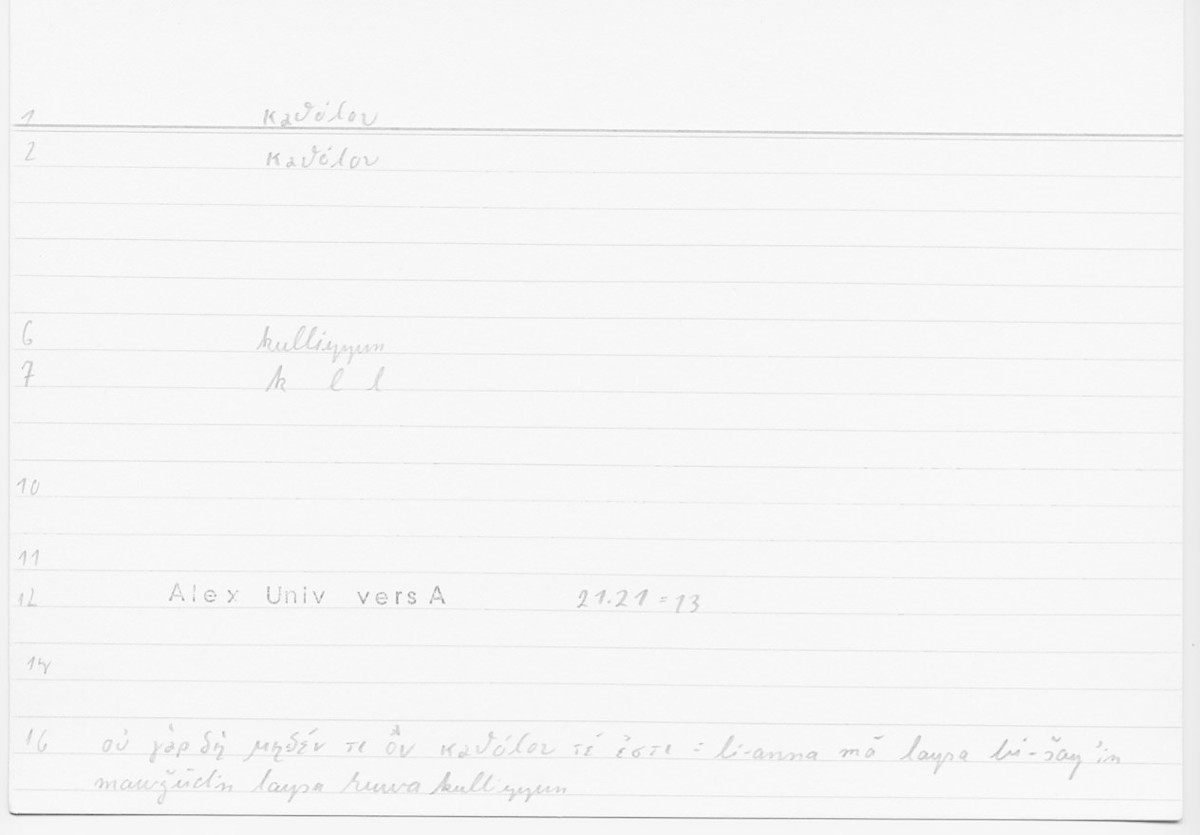 1 καθόλου
2 καθόλου
6 kulliyyun
7 k l l
10
11
12 Alex Univ vers A 21.21 = 13
14
16 οὐ γὰρ δὴ μηδέν τι ὂν καθόλου τί ἐστι = li-anna mā laysa bi-šayʾin
mawǧūdin laysa huwa kulliyyun